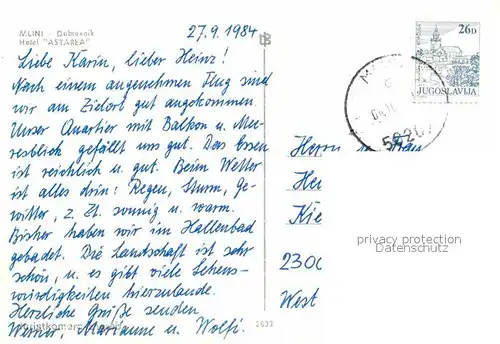 MLINI - Dubrovnik
Hotel "ASTAREA"
27.9.1984
Liebe Karin, lieber Heinz!
Nach einem angenehmen Flug sind
wir am Zielort gut angekommen.
Unser Quartier mit Balkon u. Mee-
resblick gefällt uns gut. Das Essen
ist reichlich u. gut. Beim Wetter
ist alles drin: Regen, Sturm, Ge-
witter, z. Zt. sonnig u. warm.
Bisher haben wir im Hallenbad
gebadet. Die Landschaft ist sehr
schön, u. es gibt viele Sehens-
würdigkeiten hierzulande.
Herzliche Grüße senden
Werner, Marianne u. Wolfi.
2633
26 D
JUGOSLAVIJA
Herrn
Kie
2300
West
privacy protection
Datenschutz